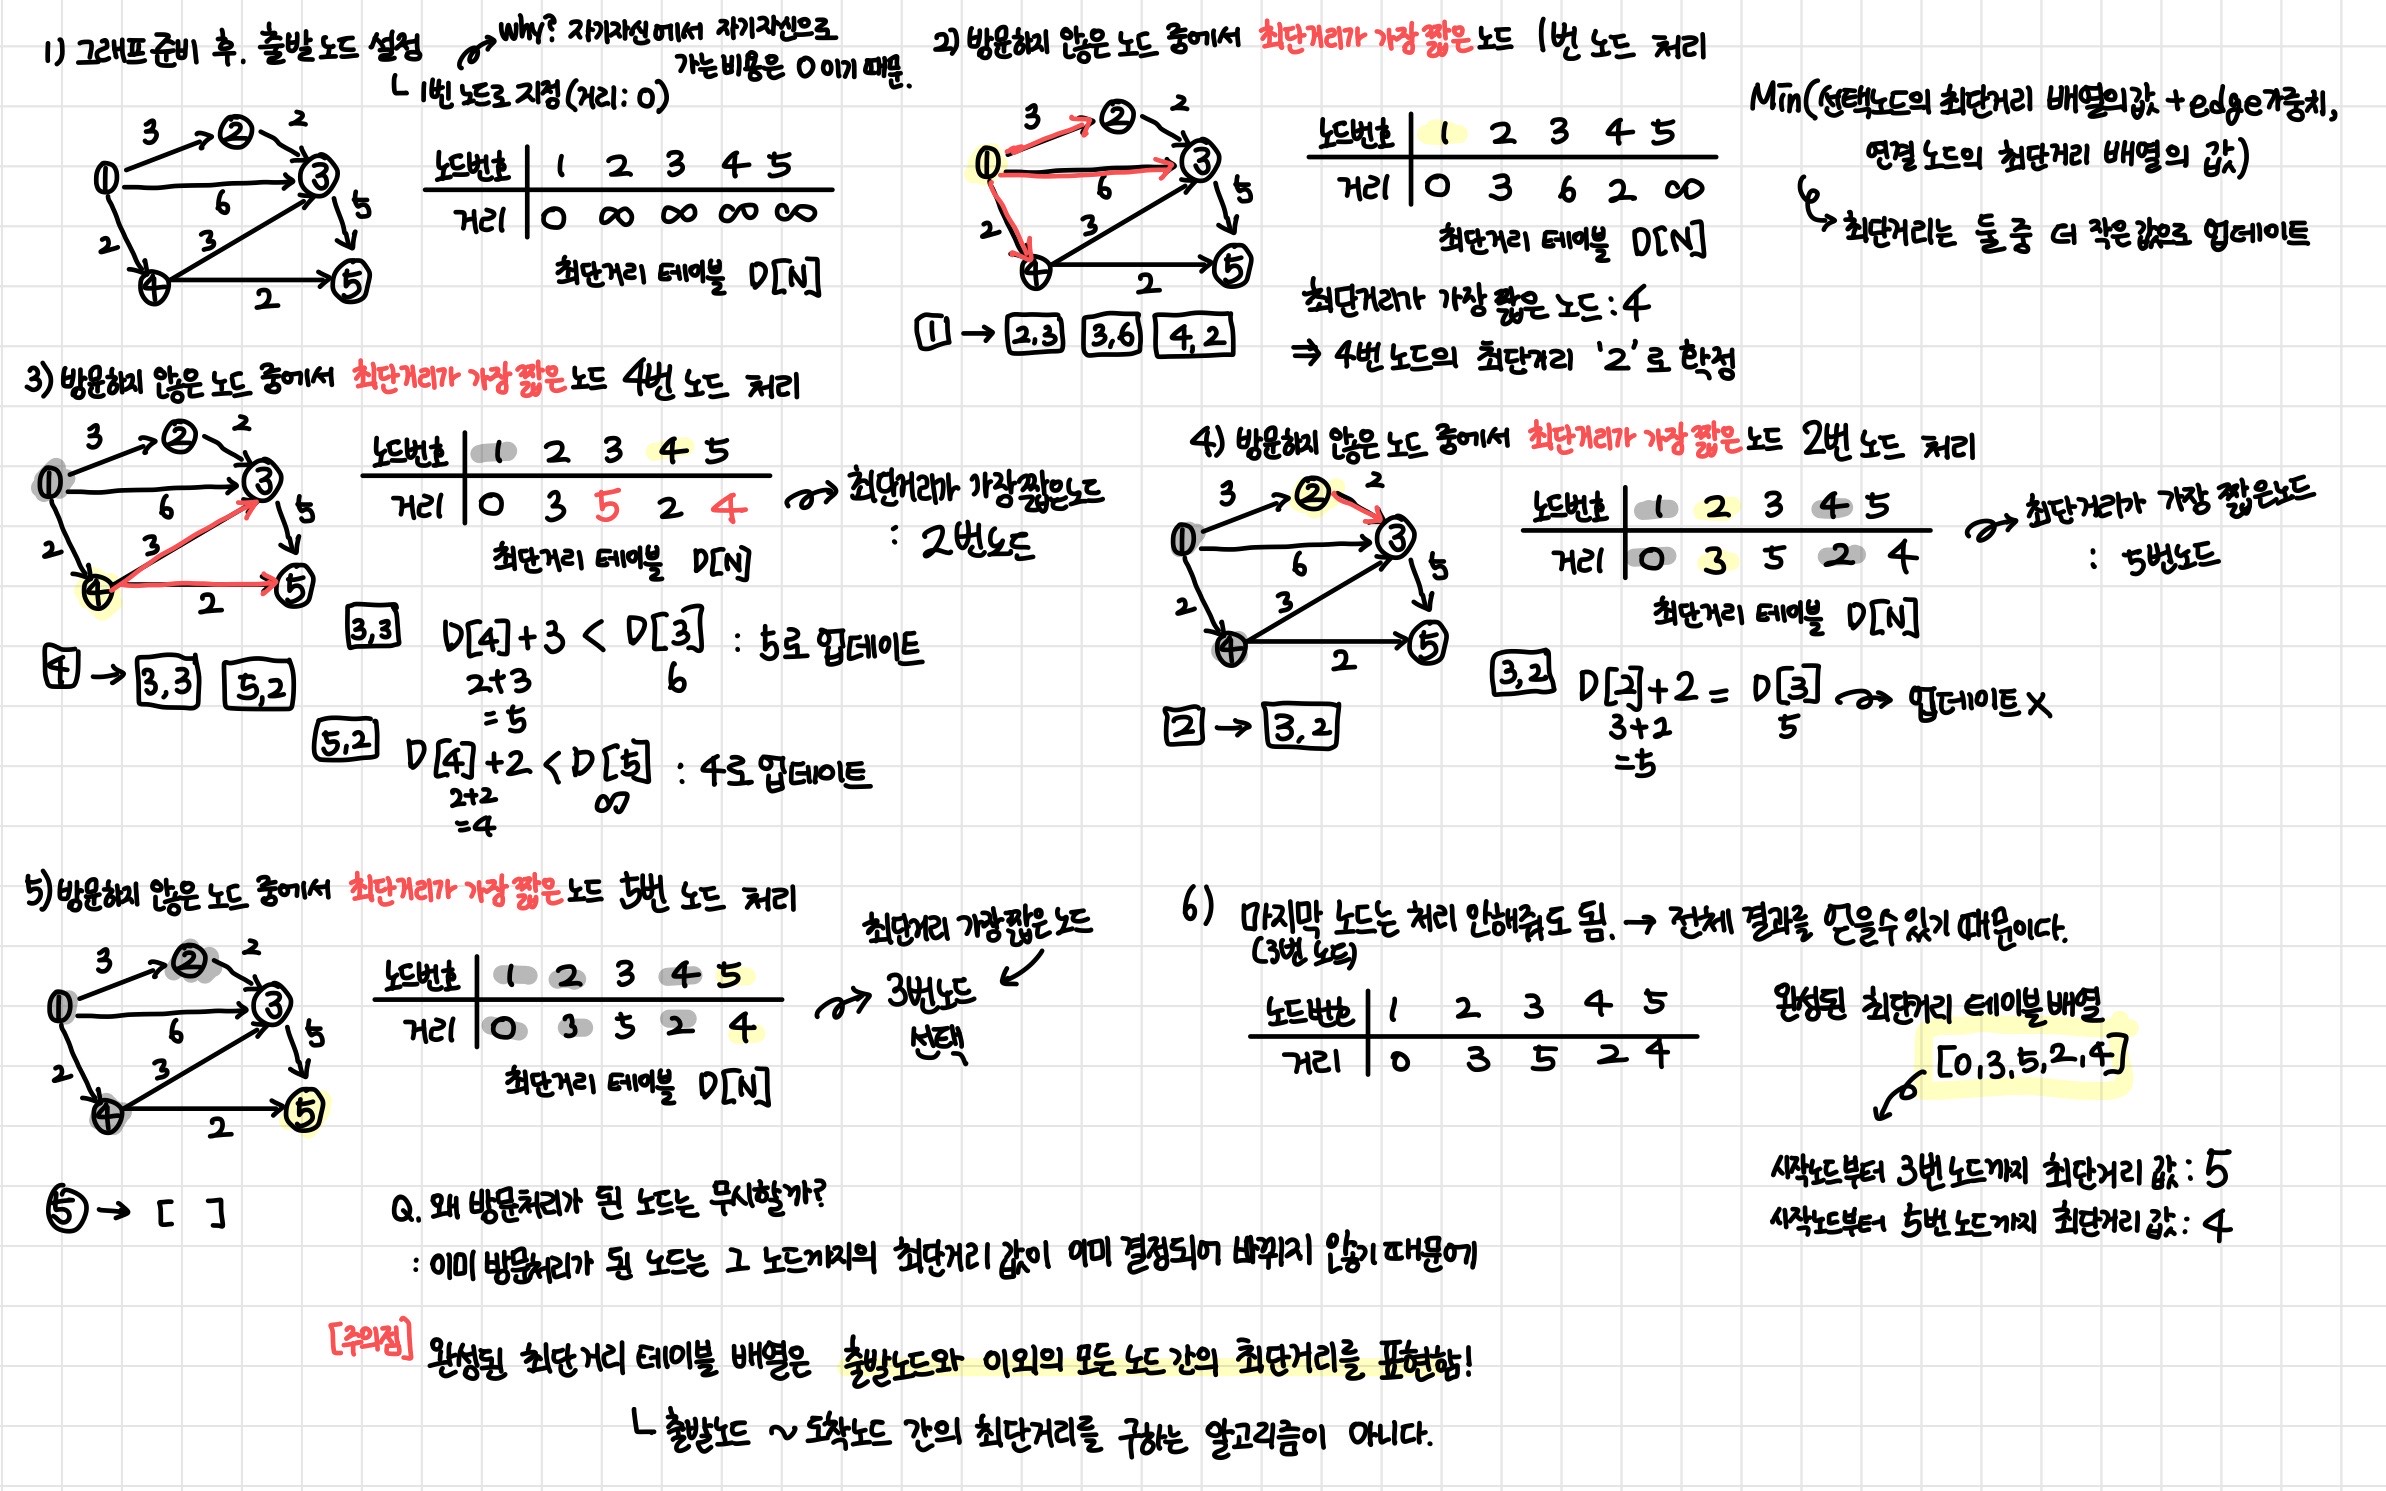 1) 그래프 준비 후. 출발 노드 설정
└ 1번 노드로 지정 (거리: 0)
why? 자기자신에서 자기자신으로
가는 비용은 0 이기 때문.
3 2 6 5 2 3 2
1 2 3 4 5
노드번호 1 2 3 4 5
거리 0 ∞ ∞ ∞ ∞
최단거리 테이블 D[N]
2) 방문하지 않은 노드 중에서 최단거리가 가장 짧은 노드 1번 노드 처리
3 2 6 5 2 3 2
1 2 3 4 5
노드번호 1 2 3 4 5
거리 0 3 6 2 ∞
최단거리 테이블 D[N]
Min(선택노드의 최단거리 배열의 값 + edge 가중치,
연결 노드의 최단거리 배열의 값)
→ 최단거리는 둘 중 더 작은 값으로 업데이트
1 → 2,3 3,6 4,2
최단거리가 가장 짧은 노드 : 4
⇒ 4번 노드의 최단거리 '2'로 확정
3) 방문하지 않은 노드 중에서 최단거리가 가장 짧은 노드 4번 노드 처리
3 2 6 5 2 3 2
1 2 3 4 5
노드번호 1 2 3 4 5
거리 0 3 5 2 4
최단거리 테이블 D[N]
→ 최단거리가 가장 짧은 노드
: 2번 노드
4 → 3,3 5,2
3,3 D[4]+3 < D[3] : 5로 업데이트
2+3 6
=5
5,2 D[4]+2 < D[5] : 4로 업데이트
2+2 ∞
=4
4) 방문하지 않은 노드 중에서 최단거리가 가장 짧은 노드 2번 노드 처리
3 2 6 5 2 3 2
1 2 3 4 5
노드번호 1 2 3 4 5
거리 0 3 5 2 4
최단거리 테이블 D[N]
→ 최단거리가 가장 짧은 노드
: 5번 노드
2 → 3,2
3,2 D[2]+2 = D[3] → 업데이트 X
3+2 5
=5
5) 방문하지 않은 노드 중에서 최단거리가 가장 짧은 노드 5번 노드 처리
3 2 6 5 2 3 2
1 2 3 4 5
노드번호 1 2 3 4 5
거리 0 3 5 2 4
최단거리 테이블 D[N]
최단거리 가장 짧은 노드
→ 3번 노드
선택
5 → [ ]
6) 마지막 노드는 처리 안해줘도 됨. → 전체 결과를 얻을 수 있기 때문이다.
(3번 노드)
노드번호 1 2 3 4 5
거리 0 3 5 2 4
완성된 최단거리 테이블 배열
[0,3,5,2,4]
시작노드부터 3번 노드까지 최단거리 값 : 5
시작노드부터 5번 노드까지 최단거리 값 : 4
Q. 왜 방문처리가 된 노드는 무시할까?
: 이미 방문처리가 된 노드는 그 노드까지의 최단거리 값이 이미 결정되어 바뀌지 않기 때문에
[주의점] 완성된 최단거리 테이블 배열은 출발노드와 이외의 모든 노드 간의 최단거리를 표현함!
└ 출발노드 ~ 도착노드 간의 최단거리를 구하는 알고리즘이 아니다.